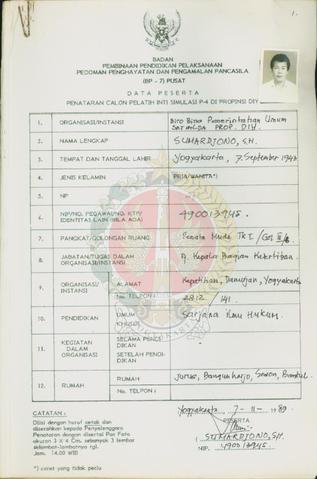 1.
BADAN
PEMBINAAN PENDIDIKAN PELAKSANAAN
PEDOMAN PENGHAYATAN DAN PENGAMALAN PANCASILA
(BP - 7) PUSAT
DATA PESERTA
PENATARAN CALON PELATIH INTI SIMULASI P-4 DI PROPINSI DIY
1. ORGANISASI/INSTANSI Biro Bina Pemerintahan Umum
PROP. DIY.
2. NAMA LENGKAP SUMARDJONO, S.H.
3. TEMPAT DAN TANGGAL LAHIR Yogyakarta, 7 September 194
4. JENIS KELAMIN PRIA/WANITA*)
5. NP
6. NIP/NO. PEGAWAI/NO. KTP/
IDENTITAS LAIN (BILA ADA) 490013945.
7. PANGKAT/GOLONGAN RUANG Penata Muda Tk I /Gol III/b
8. JABATAN/TUGAS DALAM
ORGANISASI/INSTANSI Kepala Bagian Ketertiban
9. ORGANISASI/
INSTANSI
ALAMAT Kepatihan, Danurejan, Yogyakarta
No. TELPON : 2812 141
10. PENDIDIKAN UMUM Sarjana Ilmu Hukum.
KHUSUS
11. KEGIATAN
DALAM
ORGANISASI
SELAMA PENDI-
DIKAN
SETELAH PENDI-
DIKAN
12. RUMAH RUMAH Bangunharjo, Sewon, Bantul
No. TELPON :
Yogyakarta, 7-11-1989.
CATATAN :
Diisi dengan huruf cetak dan
diserahkan kepada Penyelenggara
Penataran dengan disertai Pas Foto
ukuran 3 x 4 Cm. sebanyak 3 lembar
selambat-lambatnya tgl.
Jam. 14.00 WIB
PESERTA
( SUMARDJONO, S.H.
NIP. 490013945.
*) coret yang tidak perlu